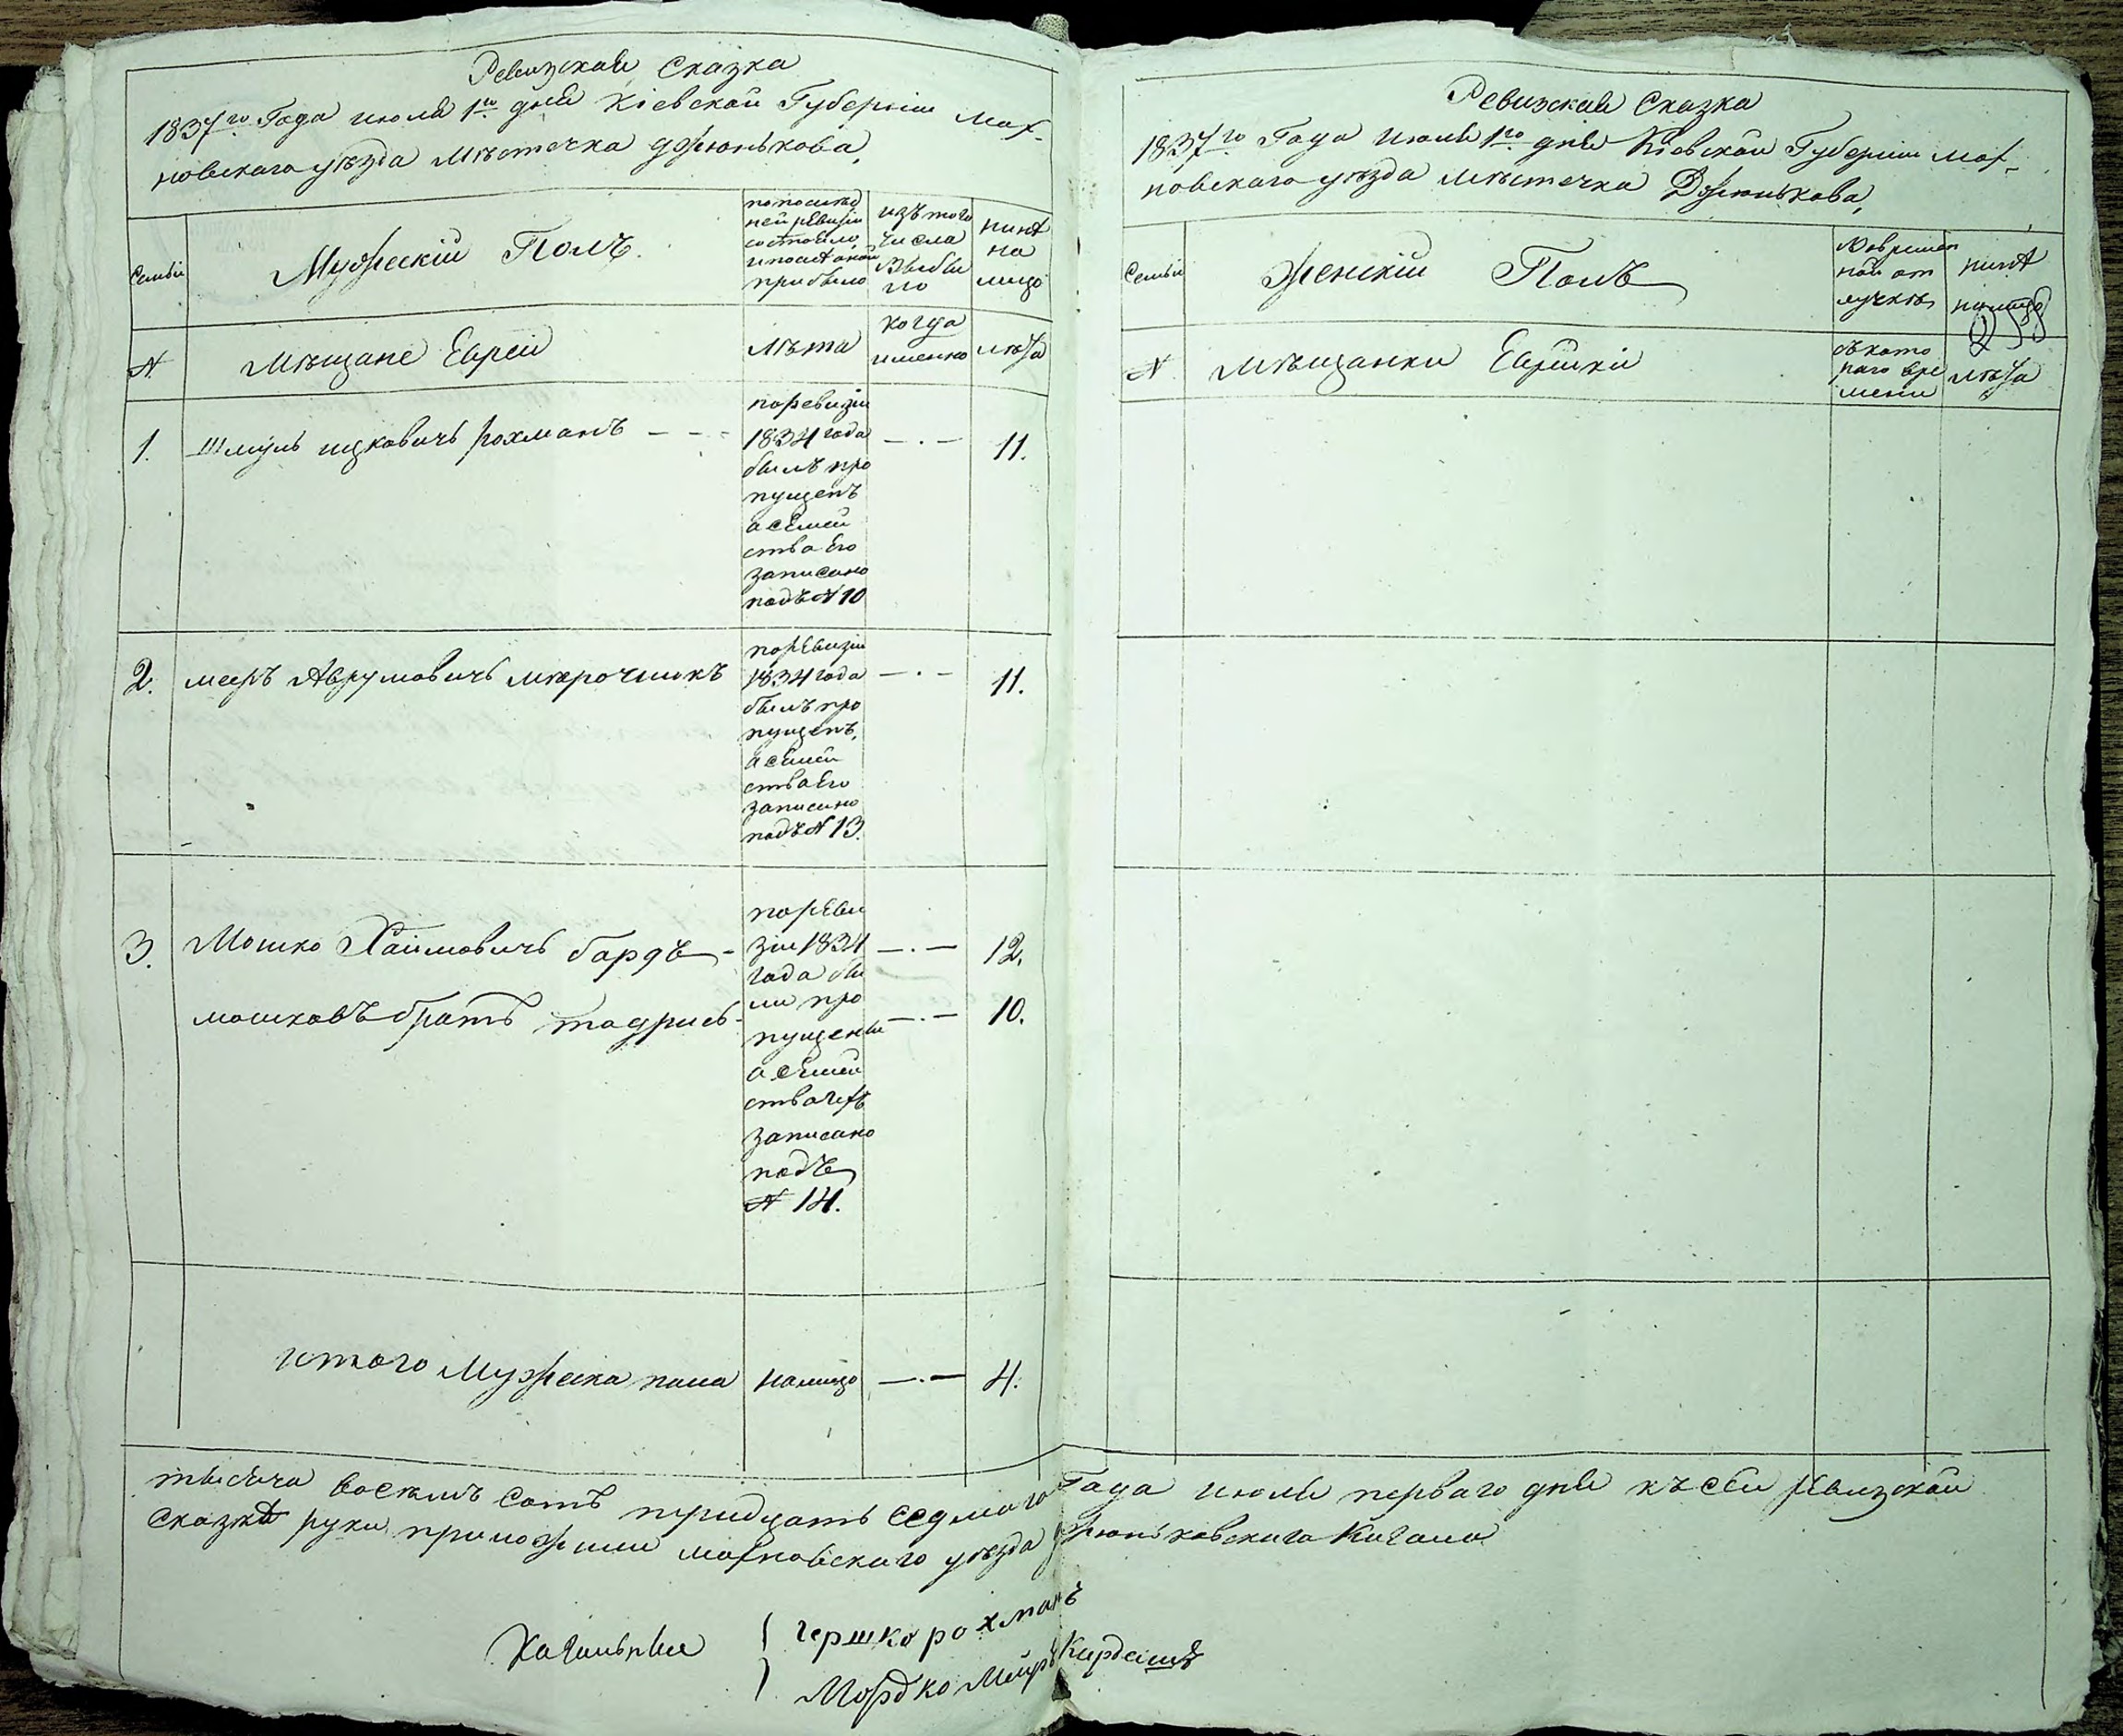 Ревизская Сказка
1837го Года июля 1го дня Кіевской Губерніи Мах-
новскаго уѣзда мѣстечка Дзюнькова,
Семьи
Мужескій Полъ.
по послѣд
ней ревизіи
состояло,
и послѣ оной
прибыло
изъ того
числа
выбы
ло
нинѣ
на
лицо
N
Мѣщане Евреи
Лѣта
когда
именно
лѣта
1.
Шмуль ицковичъ рохманъ - - -
по ревизіи
1834 года
былъ про
пущенъ
а семей
ство его
записано
подъ N 10
—.—
11.
2.
мееръ Аврумовичъ мирочникъ
по ревизіи
1834 года
былъ про
пущенъ,
а семей
ство его
записано
подъ N 13.
—.—
11.
3.
Мошко Хаимовичъ бардъ -
мошковъ братъ тодрисъ -
по реви
зіи 1834
года бы
ли про
пущены
а семей
ство ихъ
записано
подъ
N 14.
—.—
12.
—.—
10.
итого Мужеска пола
налицо
—.—
4.
Ревизская Сказка
1837го Года Июля 1го дня Кіевской Губерніи мах-
новскаго уѣзда мѣстечка Дзюнькова,
Семьи
Женскій Полъ
Во времен
ной от
лучкѣ
нинѣ
налицо
N
Мѣщанки Еврейки
съ кото
раго вре
мени
лѣта
тысяча восемь сотъ тридцать седмаго Года июля перваго дня къ сей ревизской
сказкѣ руки приложили махновскаго уѣзда дзюньковскаго Кагала
Кагальные
гершко рохманъ
Мордко Меиръ